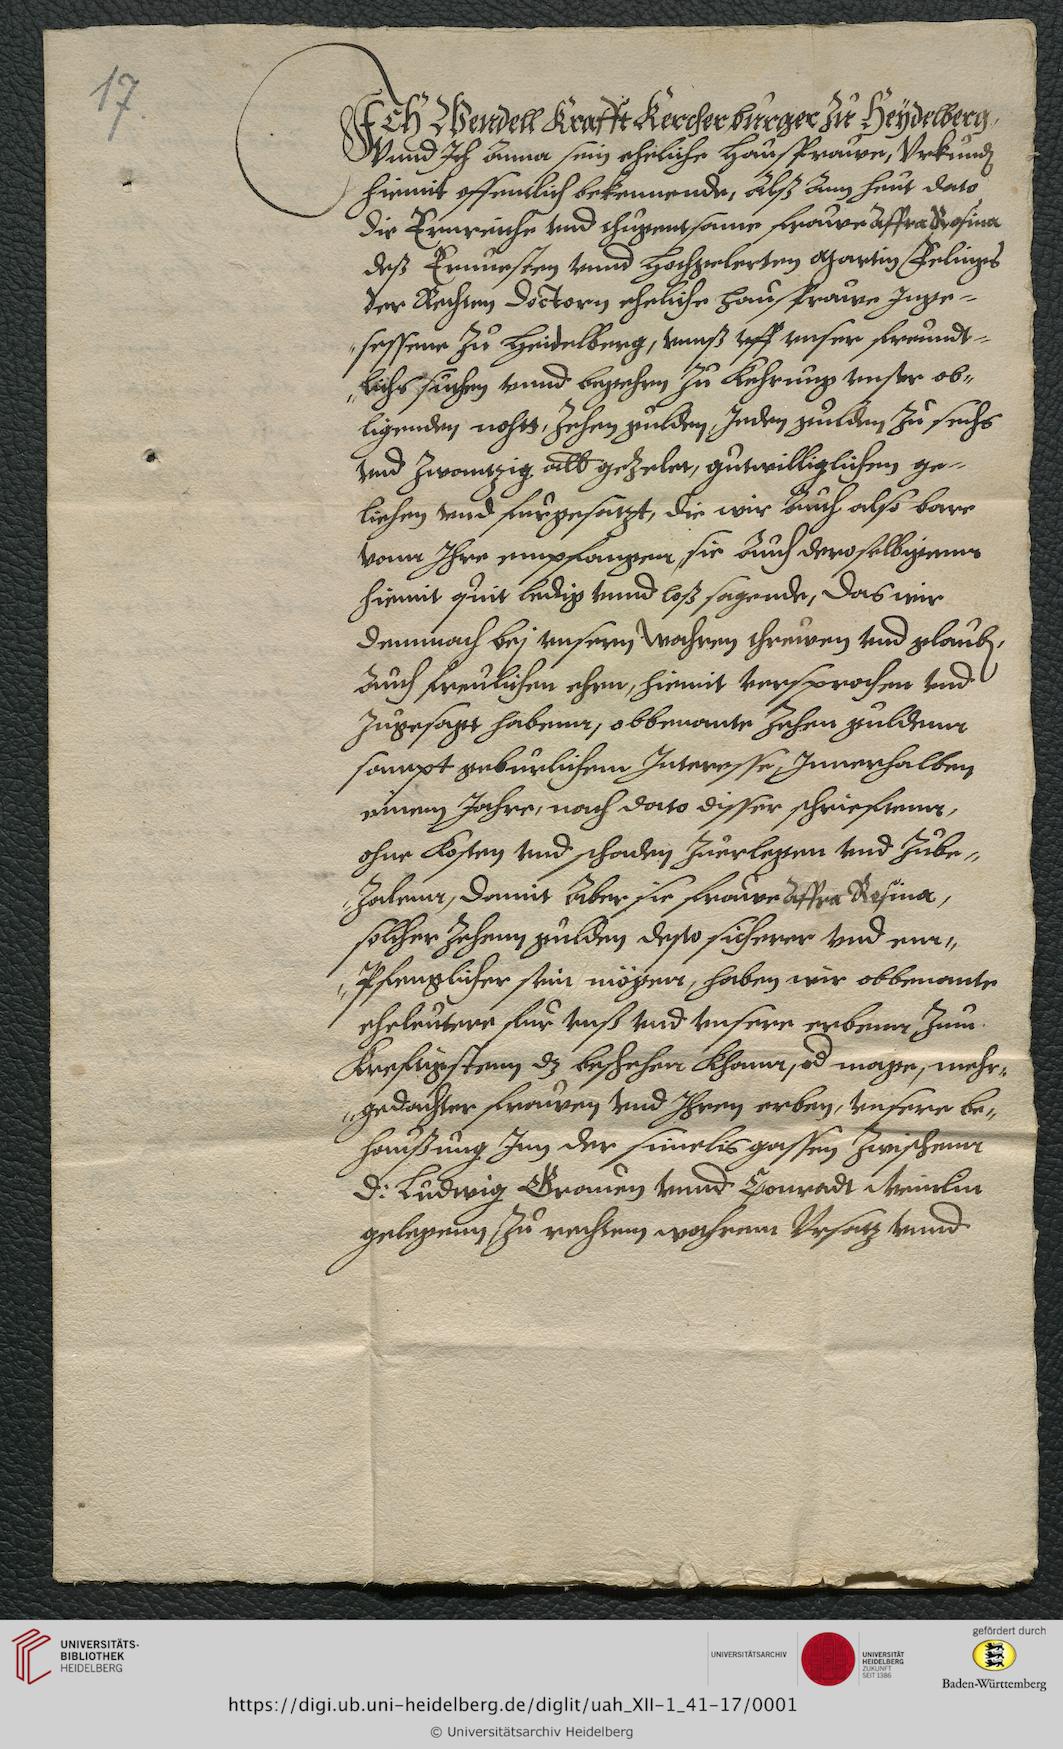 17
Ich Wendell Krafft Kercher burger zu Heÿdelberg,
Vnnd Ich Anna sein eheliche Haußfrauwe, Vrkundt
hiemit offentlich bekennende, Alß Ann heut dato
die Ernreiche vnd thugentsame frauwe Affra Rosina
deß Ernuesten vnnd Hochgelerten Martin
der Rechten Doctorn eheliche haußfrauwe Inge-
sessene zu Heidelberg, vnnß vff vnser freundt-
lichs suchen vnnd begehrn zu kehrung vnser ob-
ligenden noht, Zehen gulden, Jeden gulden zu sechs
vnd zwantzig alb gezelet, gutwilliglichen ge-
liehen vnd furgesatzt, die wir Auch also bare
vonn Ihre empfangen, sie Auch deroselbigenn
hiemit quit ledig vnnd loß sagende, Das wir
demnach bej vnsern wahren threwen vnd glaub,
Auch freulichen ehrn, hiemit versprochen vnd
zugesagt habenn, obbenante Zehen guldenn
sampt geburlichem Interesse, Innerhalben
einem Jahre, nach dato disser schriefftenn,
ohne kosten vnd schaden zuerlegen vnd zube-
zalenn, Damit Aber sie frauwe Affra Rosina,
solcher Zehenn gulden desto sicherer vnd em-
pfenglicher sein mögen, haben wir obbenante
eheleutere fur vnß vnd vnsere erbenn zum
krefftigstenn dz beschehen khann, od mage, mehr-
gedachter frauwen vnd Ihren erben, vnsere be-
haußung Inn der simelis gassen zwischenn
D: Ludwig Grauen vnnd Conradt
gelegenn zu rechtem wahrem Vrsatz vnnd
UNIVERSITÄTS-
BIBLIOTHEK
HEIDELBERG
UNIVERSITÄTSARCHIV
UNIVERSITÄT
HEIDELBERG
ZUKUNFT
SEIT 1386
gefördert durch
Baden-Württemberg
https://digi.ub.uni-heidelberg.de/diglit/uah_XII-1_41-17/0001
© Universitätsarchiv Heidelberg